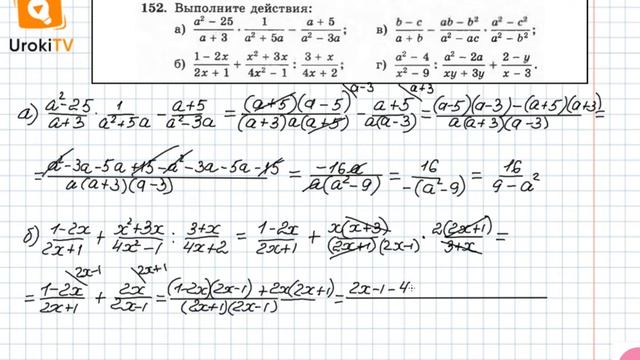 UrokiTV
152. Выполните действия:
а) (a² − 25)/(a + 3) · 1/(a² + 5a) − (a + 5)/(a² − 3a); в) (b − c)/(a + b) − (ab − b²)/(a² − ac) · (a² − c²)/(a² − b²);
б) (1 − 2x)/(2x + 1) + (x² + 3x)/(4x² − 1) : (3 + x)/(4x + 2); г) (a² − 4)/(x² − 9) : (a² − 2a)/(xy + 3y) + (2 − y)/(x − 3).
а) (a²−25)/(a+3) · 1/(a²+5a) − (a+5)/(a²−3a) = (a+5)(a−5)/((a+3)a(a+5)) a−3 − (a+5)/(a(a−3)) a+3 = ((a−5)(a−3)−(a+5)(a+3))/(a(a+3)(a−3)) =
= (a²−3a−5a+15−a²−3a−5a−15)/(a(a+3)(a−3)) = −16a/(a(a²−9)) = 16/(−(a²−9)) = 16/(9−a²)
б) (1−2x)/(2x+1) + (x²+3x)/(4x²−1) : (3+x)/(4x+2) = (1−2x)/(2x+1) + x(x+3)/((2x+1)(2x−1)) · 2(2x+1)/(3+x) =
= (1−2x)/(2x+1) 2x−1 + 2x/(2x−1) 2x+1 = ((1−2x)(2x−1)+2x(2x+1))/((2x+1)(2x−1)) = 2x−1−4